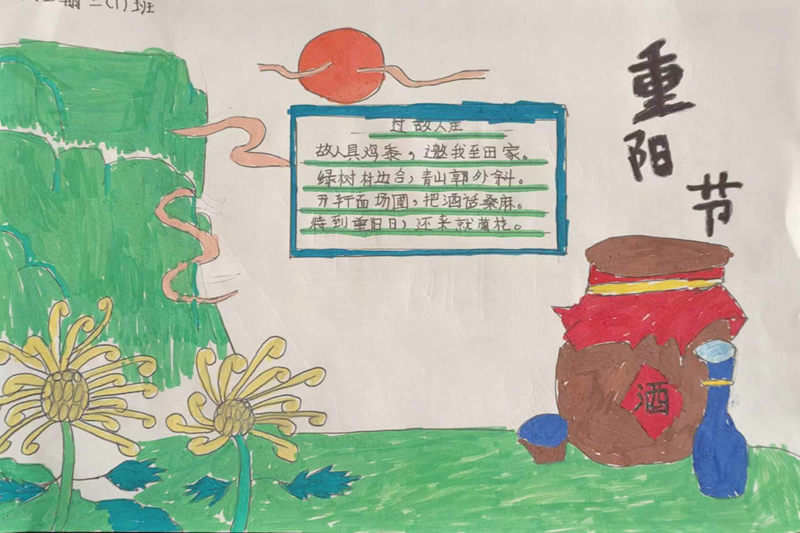 二(1)班
重阳节
过故人庄
故人具鸡黍，邀我至田家。
绿树村边合，青山郭外斜。
开轩面场圃，把酒话桑麻。
待到重阳日，还来就菊花。
酒